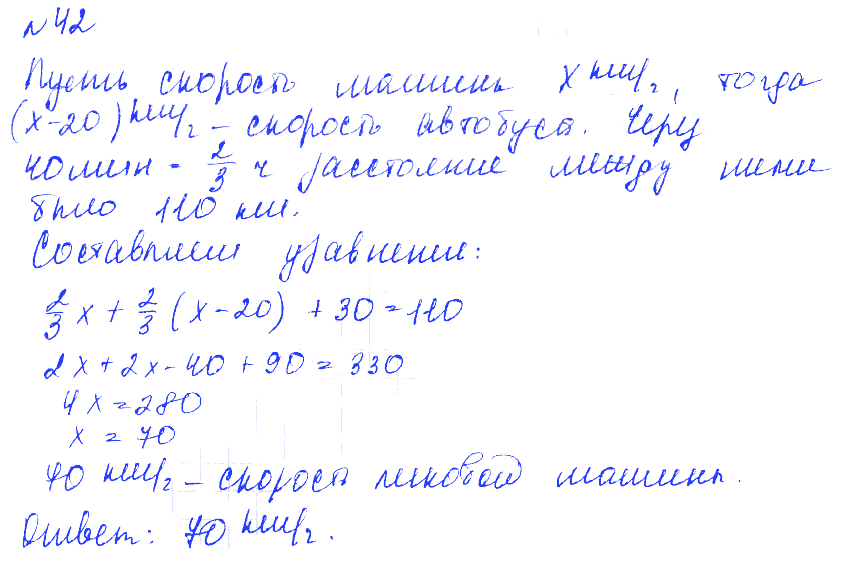 №42
Пусть скорость машины x км/г, тогда
(x-20) км/г - скорость автобуса. Через
40 мин = 2/3 ч расстояние между ними
было 110 км.
Составляем уравнение:
2/3 x + 2/3 (x-20) + 30 = 110
2x + 2x - 40 + 90 = 330
4x = 280
x = 70
70 км/г - скорость легковой машины.
Ответ: 70 км/г.